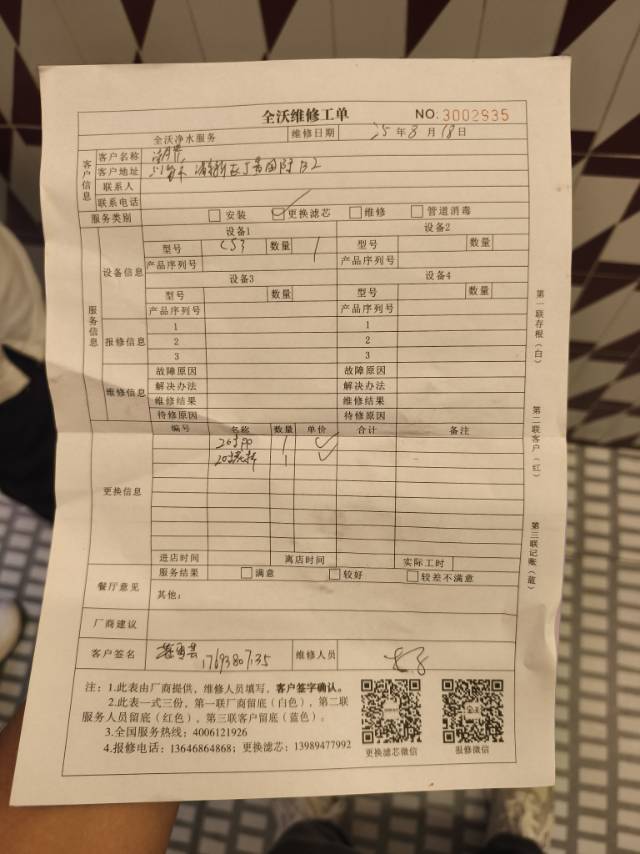 全沃维修工单
NO: 3002935
全沃净水服务 维修日期 25 年 3 月 18 日
客户信息
客户名称
客户地址
联系人
联系电话
服务类别 安装 更换滤芯 维修 管道消毒
服务信息
设备信息
设备1 设备2
型号 C53 数量 1 型号 数量
产品序列号 产品序列号
设备3 设备4
型号 数量 型号 数量
产品序列号 产品序列号
报修信息
1 1
2 2
3 3
维修信息
故障原因 故障原因
解决办法 解决办法
维修结果 维修结果
待修原因 待修原因
更换信息
编号 名称 数量 单价 合计 备注
20寸PP 1
20寸 1
进店时间 离店时间 实际工时
餐厅意见
服务结果 满意 较好 较差不满意
其他:
厂商建议
客户签名 维修人员
注: 1.此表由厂商提供, 维修人员填写, 客户签字确认。
2.此表一式三份, 第一联厂商留底(白色), 第二联
服务人员留底(红色), 第三联客户留底(蓝色)。
3.全国服务热线: 4006121926
4.报修电话: 13646864868; 更换滤芯: 13989477992
更换滤芯微信 报修微信
第一联存根(白)
第二联客户(红)
第三联记账(蓝)